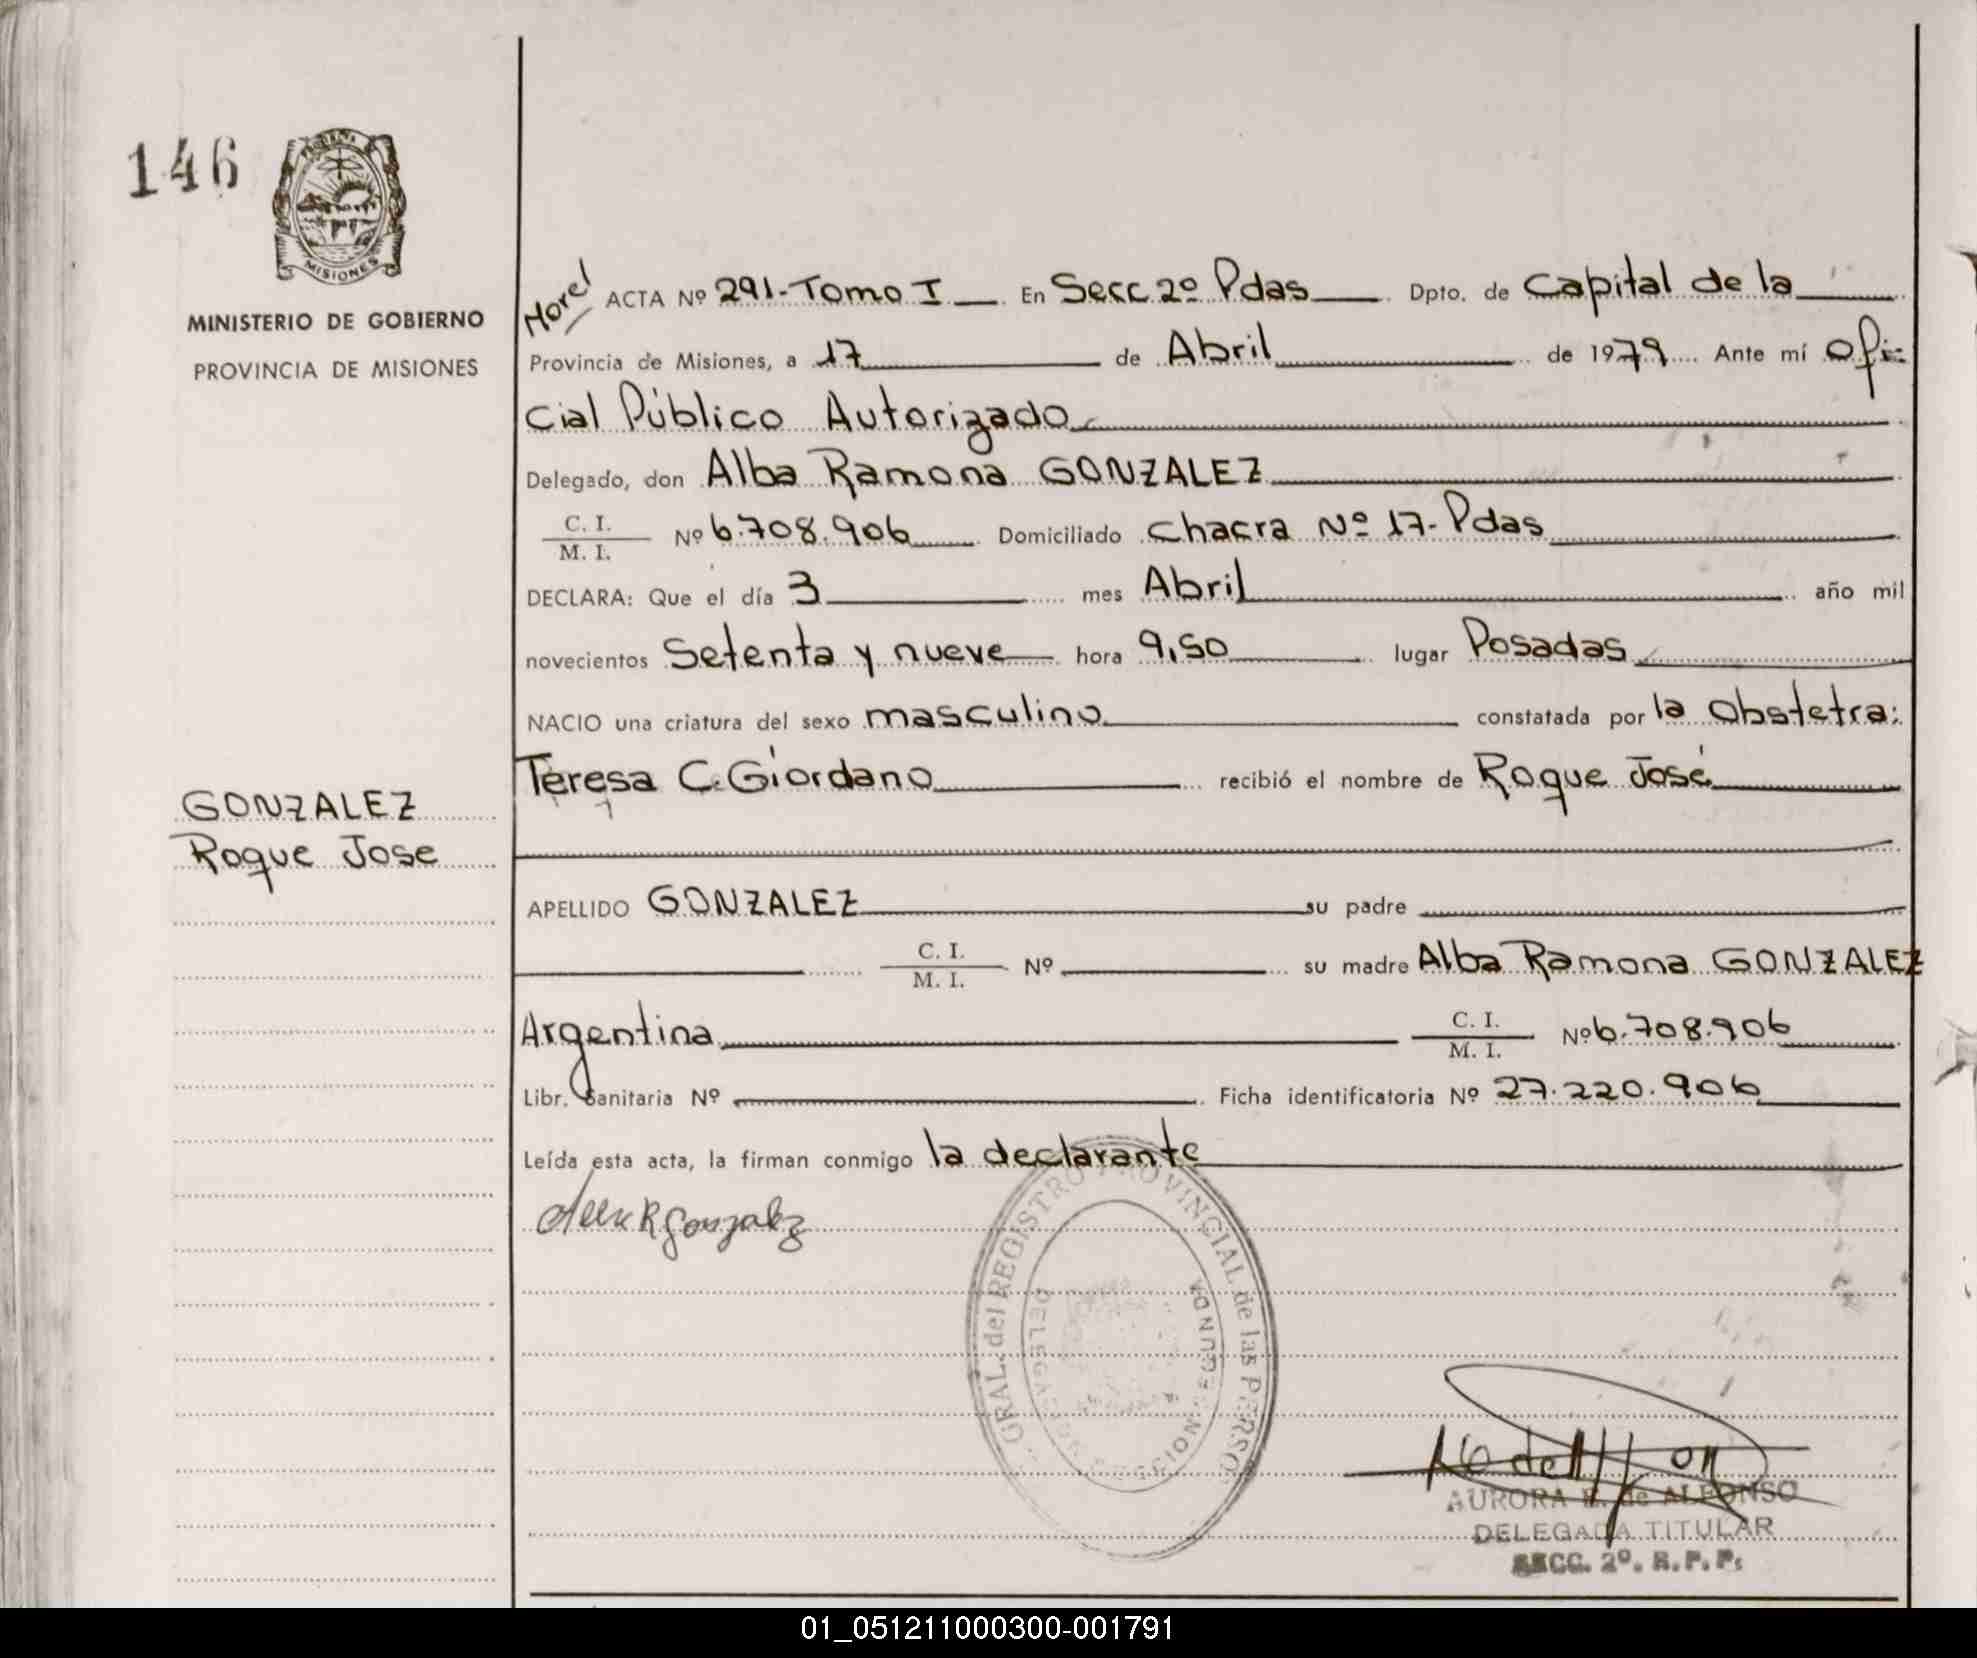 146
PROVINCIA
MISIONES
MINISTERIO DE GOBIERNO
PROVINCIA DE MISIONES
GONZALEZ
Roque Jose
Morel
ACTA Nº 291-Tomo I En Secc 2º Pdas Dpto. de Capital de la
Provincia de Misiones, a 17 de Abril de 1979 Ante mí Ofi-
cial Público Autorizado
Delegado, don Alba Ramona GONZALEZ
C. I.
M. I. Nº 6.708.906 Domiciliado Chacra Nº 17- Pdas
DECLARA: Que el día 3 mes Abril año mil
novecientos Setenta y nueve hora 9,50 lugar Posadas
NACIO una criatura del sexo masculino constatada por la Obstetra:
Teresa C. Giordano recibió el nombre de Roque José
APELLIDO GONZALEZ su padre
C. I.
M. I. Nº su madre Alba Ramona GONZALEZ
Argentina C. I.
M. I. Nº 6.708.906
Libr. Sanitaria Nº Ficha identificatoria Nº 27.220.906
Leída esta acta, la firman conmigo la declarante
Alba R Gonzalez
GRAL. del REGISTRO PROVINCIAL de las PERSO
DELEGACION SECCION SEGUNDA
AURORA E. de ALFONSO
DELEGADA TITULAR
SECC. 2º. R. P. P.
01_051211000300-001791